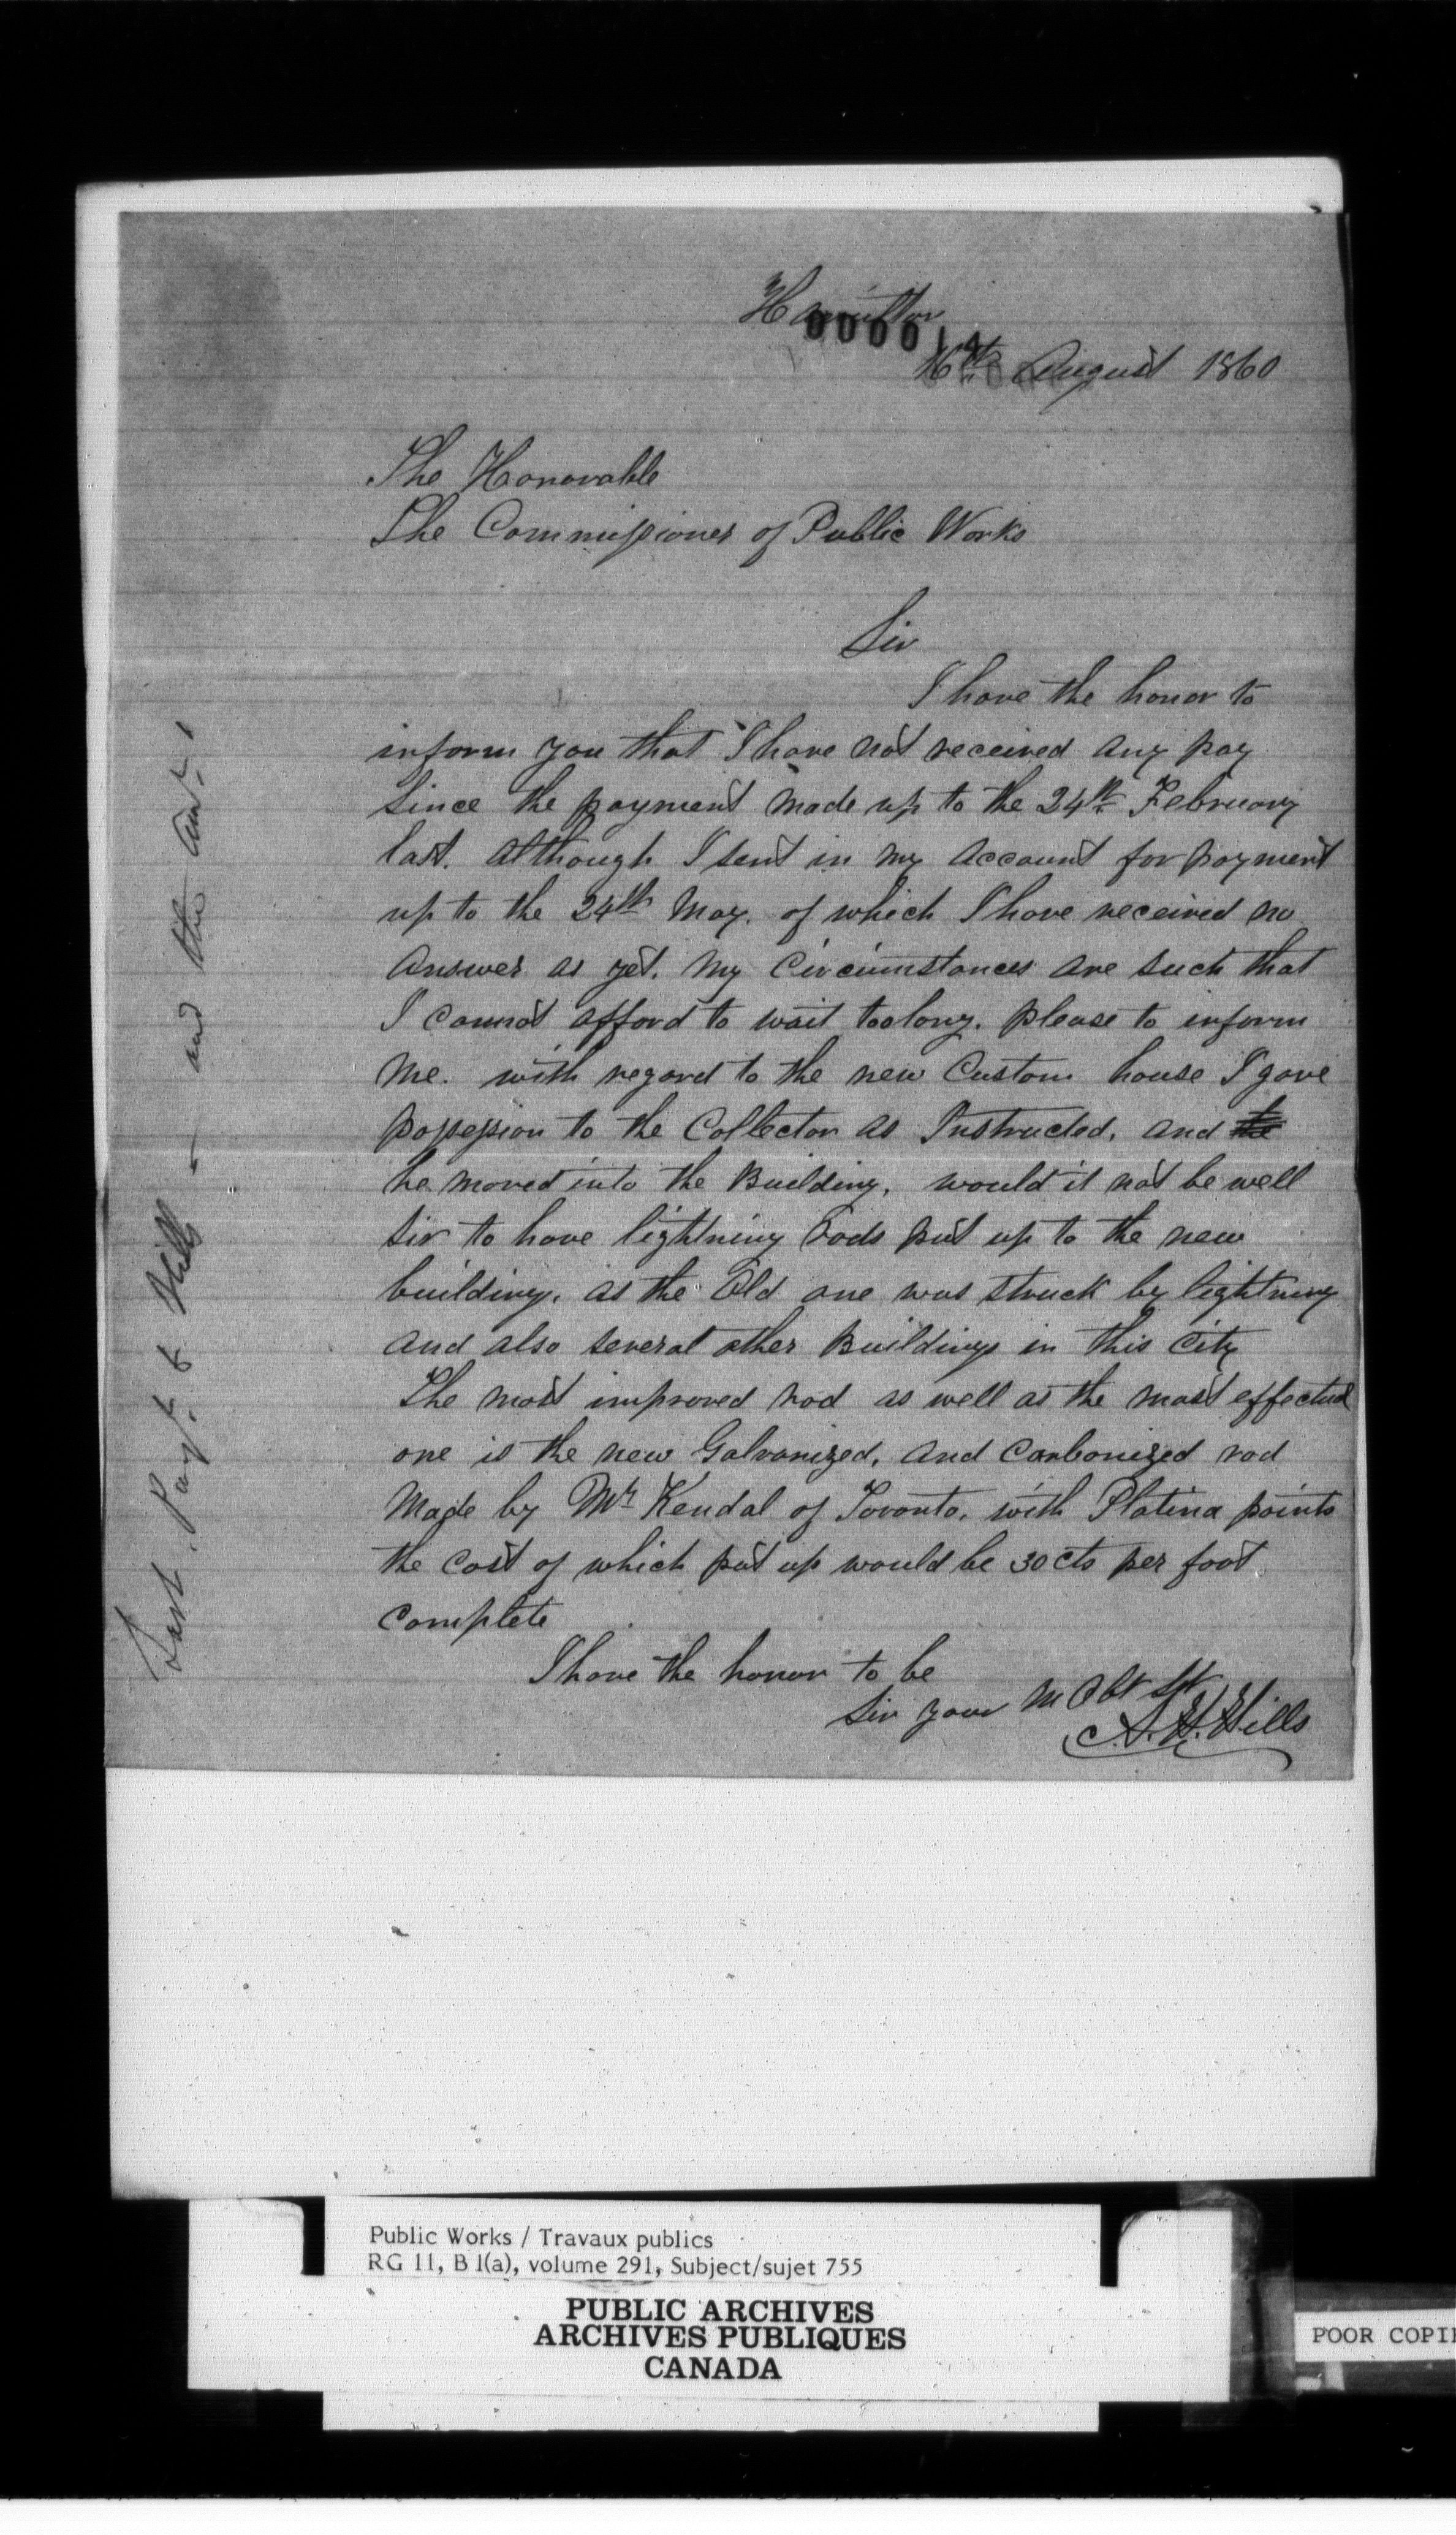 Hamilton
000014
16th August 1860
The Honorable
The Commissioner of Public Works
Sir
I have the honor to
inform you that I have not received any pay
Since the payment made up to the 24th February
last. although I sent in my account for payment
up to the 24th May. of which I have received no
answer as yet. My Circumstances are such that
I cannot afford to wait too long. please to inform
me. with regard to the new Custom house I gave
possession to the Collector as Instructed, and the
he moved into the Building, would it not be well
Sir to have lightning rods put up to the new
building, as the Old one was struck by lightning
and also several other Buildings in this City
The most improved rod as well as the most effectual
one is the new Galvanized, and Carbonized rod
Made by Mr Kendal of Toronto, with Platina points
the Cost of which put up would be 30 cts per foot
Complete
I have the honor to be
Sir your M Obt St
A. H. Hills
Last Payt. to Hills - and the amt.
Public Works / Travaux publics
RG 11, B 1(a), volume 291, Subject/sujet 755
PUBLIC ARCHIVES
ARCHIVES PUBLIQUES
CANADA
POOR COPI